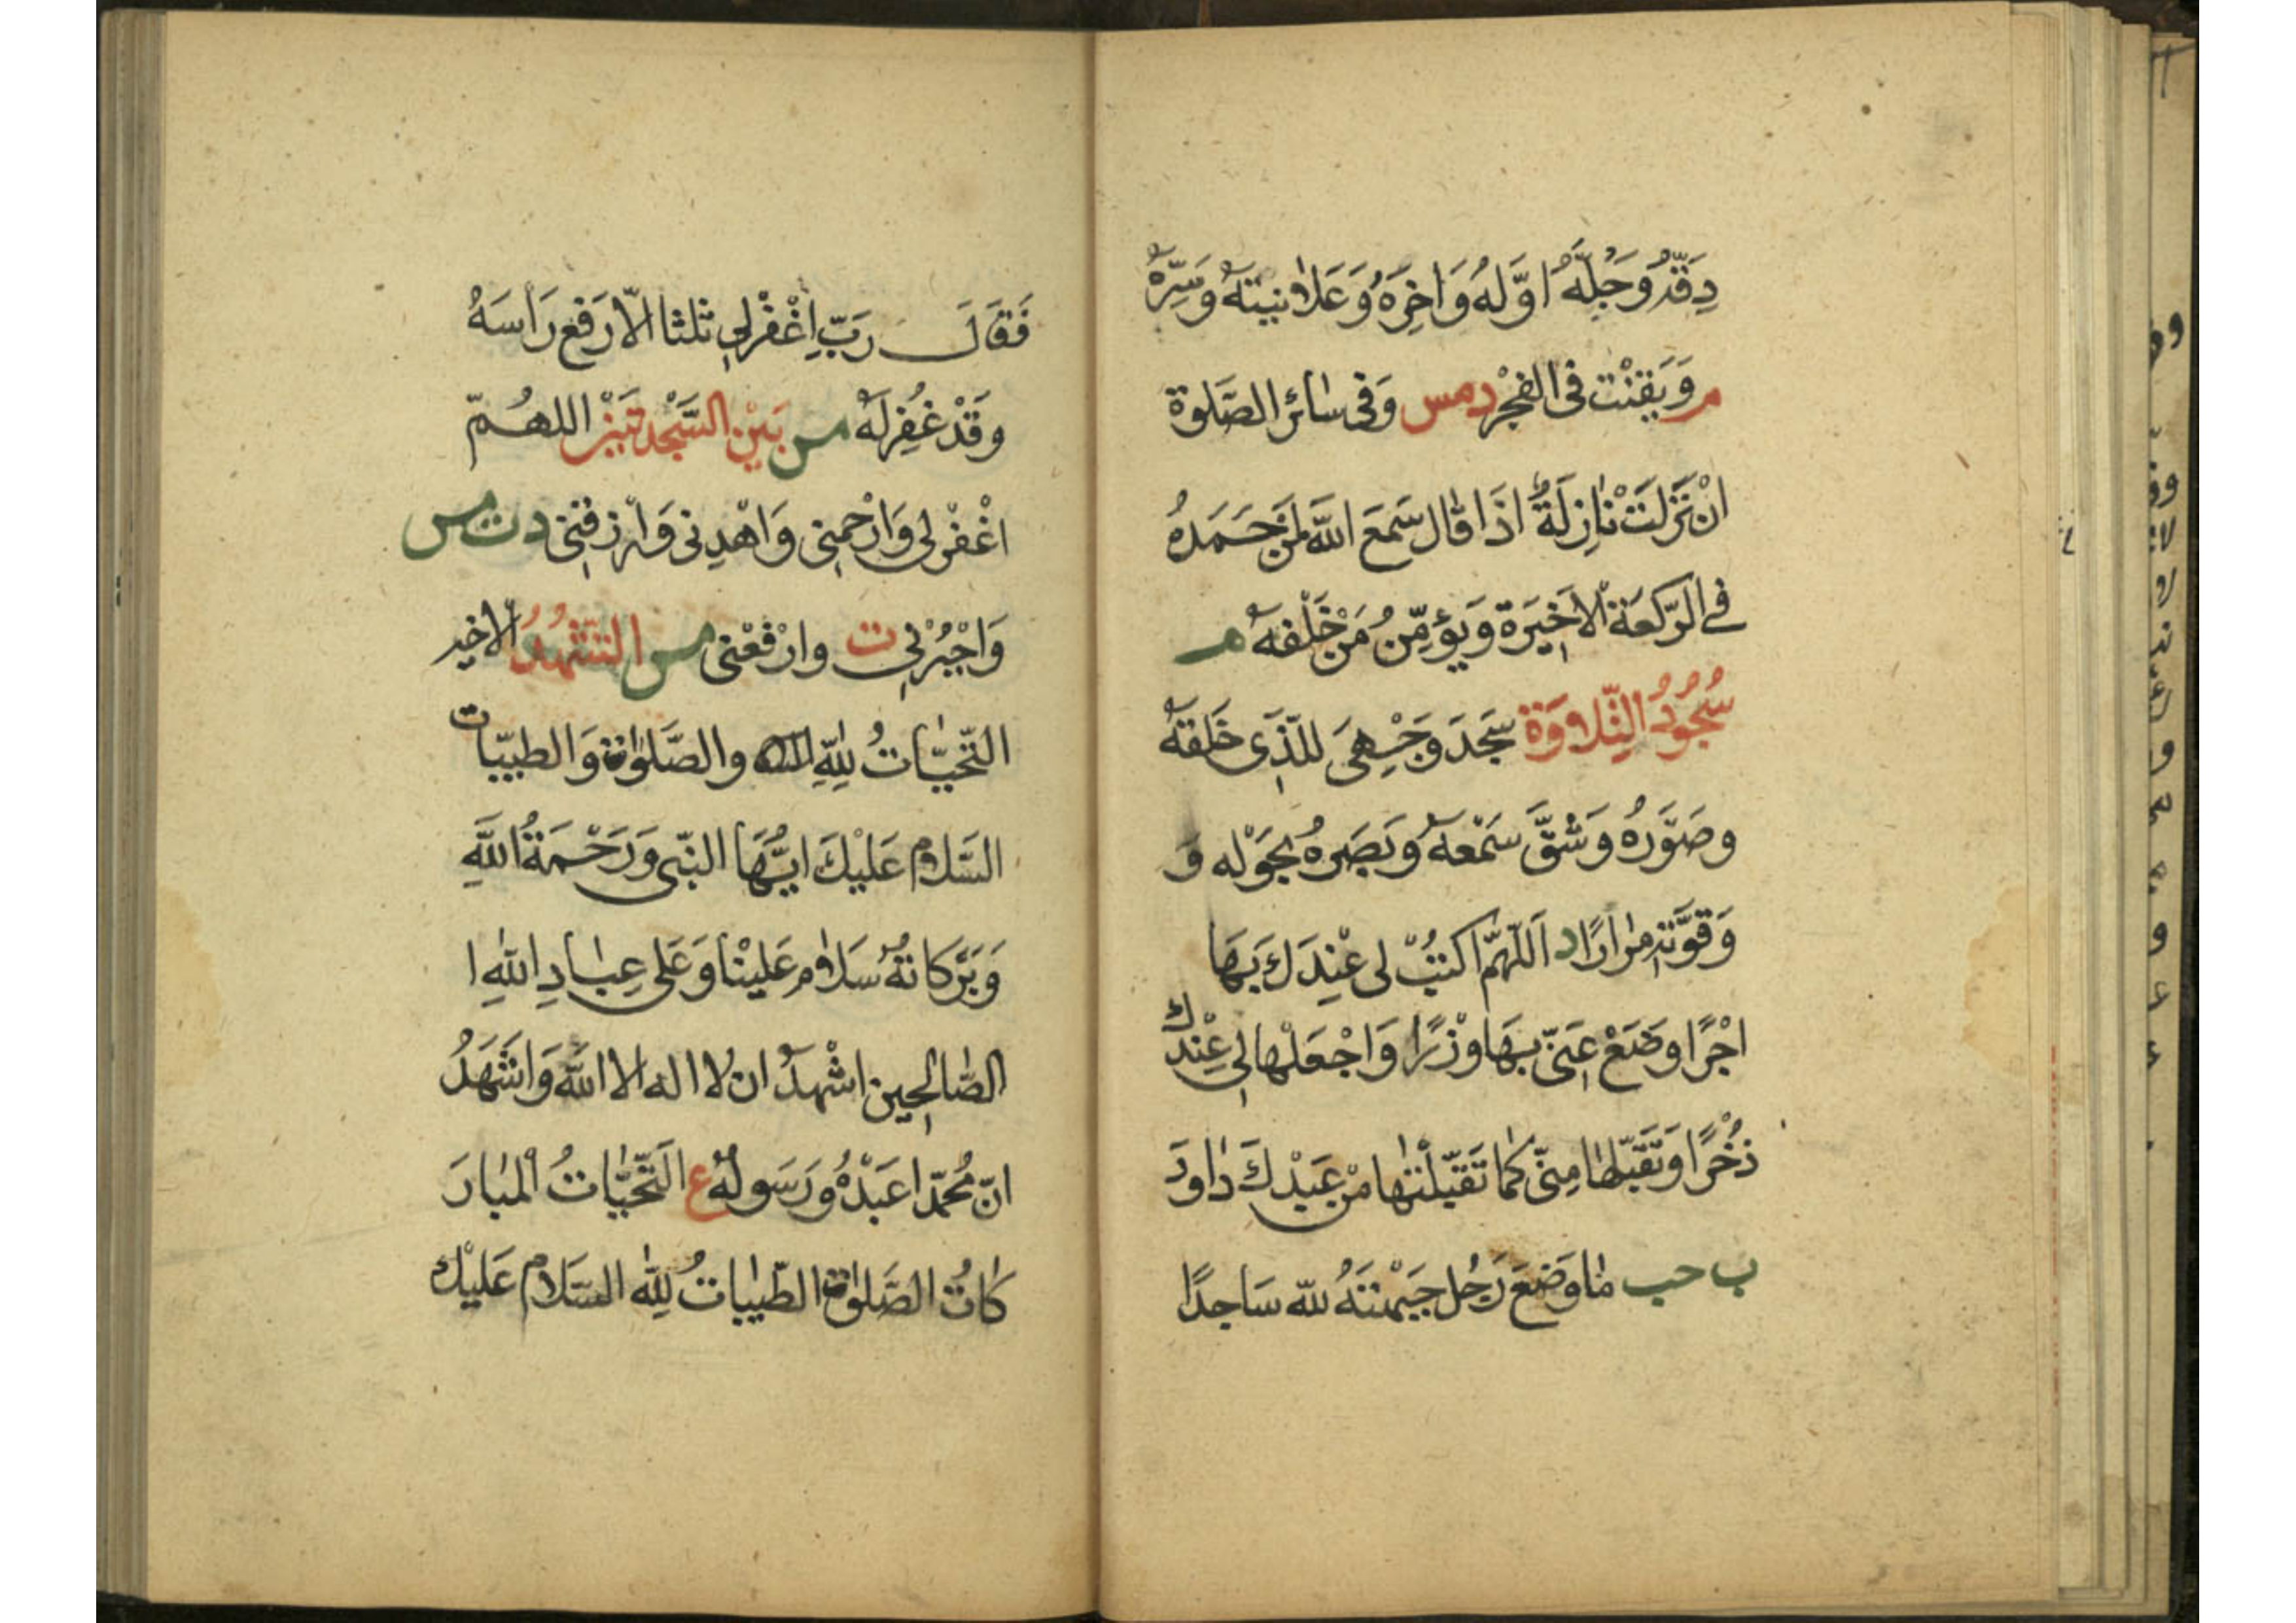 دِقَّهُ وَجُلَّهُ اوَّلهُ وَاخِرَهُ وَعَلانِيتَهُ وَسِرَّهُ
م وَيَقنْت فى الفجْر دمس وَفى سائر الصَّلوة
انْ نَزَلَتْ نازِلَةٌ اذَا قال سَمعَ اللّه لمَنْ حَمَدهُ
فے الرّكعَة الاخيَرة وَيؤمِّنُ مَنْ خَلْفهُ م
سُجُودُ التِّلاوَة سَجَدَ وَجْهِىَ للّذِى خَلقهُ
وصَوَّرهُ وَشقَّ سَمْعهُ وَبَصَرهُ بحَوْله وَ
وَقوَّته مرارًا د اَللّهُمَّ اكتبْ لى عنْدَك بَهَا
اجْرًا وضَعْ عَنّى بهَا وزْرًا وَاجْعَلْها لى عِنْدكَ
ذُخْرًا وَتقَبّلها مِنّى كمَا تَقبّلْتها منْ عَبْدكَ داودَ
ب حب مَا وَضعَ رَجُل جَبْهتَهُ للّه سَاجدًا
فَقَالَ رَبِّ اِغْفرْلى ثلثا الاّ رَفع رَاسَهُ
وَقَدْ غُفِرلَهُ مس بَيْن السَّجْدتيَنْ اللهُمّ
اغْفرْلى وَارْحمْنى وَاهْدِنى وَارْزقنى د ت مس
وَاجْبُرْنى ت وارْفعْنى مس التشَهّدُ الاخير
التّحيّاتُ لِلّهِ والصَّلوات وَالطيبّات
السَّلام عَليْكَ ايُّهَا النّبى وَرَحْمَةُ اللّهِ
وَبَرَكاتهُ سَلام عَليْنا وَعَلى عِبادِ اللّهِ ا
الصَّالحِين اشْهدُ ان لا اله الا اللّه وَاشَهَدُ
انّ مُحمّدا عَبْدُهُ وَرَسَولهُ ع اَلتّحيّاتُ المبارَ
كاتُ الصَّلواتُ الطّيباتُ لِلّه السَّلام عَليْك